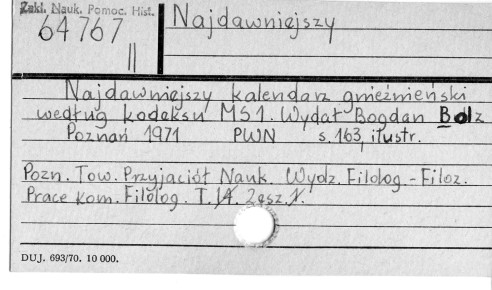 Zakł. Nauk. Pomoc. Hist.
64767
II
Najdawniejszy
Najdawniejszy kalendarz gnieźnieński
według kodeksu MS 1. Wydał Bogdan Bolz
Poznań 1971 PWN s. 163, ilustr.
Pozn. Tow. Przyjaciół Nauk. Wydz. Filolog.-Filoz.
Prace Kom. Filolog. T. Zesz. 1.
DUJ. 693/70. 10 000.